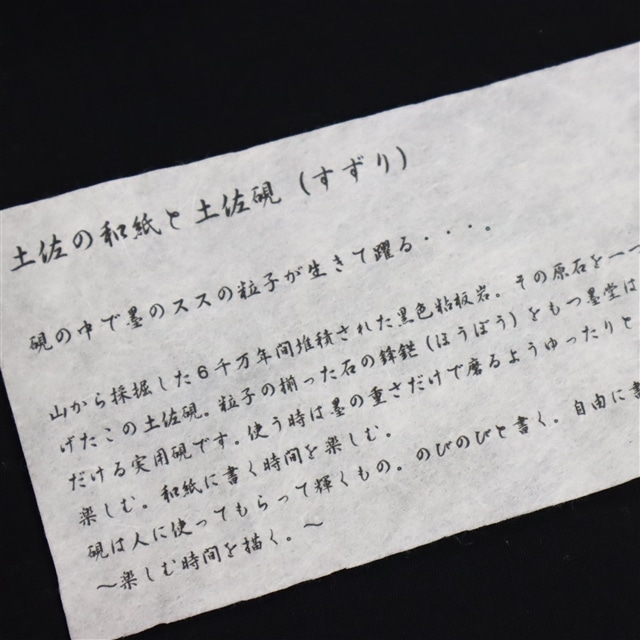 土佐の和紙と土佐硯(すずり)
硯の中で墨のススの粒子が生きて躍る・・・・。
山から採掘した6千万年間堆積された黒色粘板岩。その原石を一
げたこの土佐硯。粒子の揃った石の鋒鋩(ほうぼう)をもつ墨堂は
だける実用硯です。使う時は墨の重さだけで磨るようゆったりと
楽しむ。和紙に書く時間を楽しむ。
硯は人に使ってもらって輝くもの。のびのびと書く。自由に書
〜楽しむ時間を描く。〜